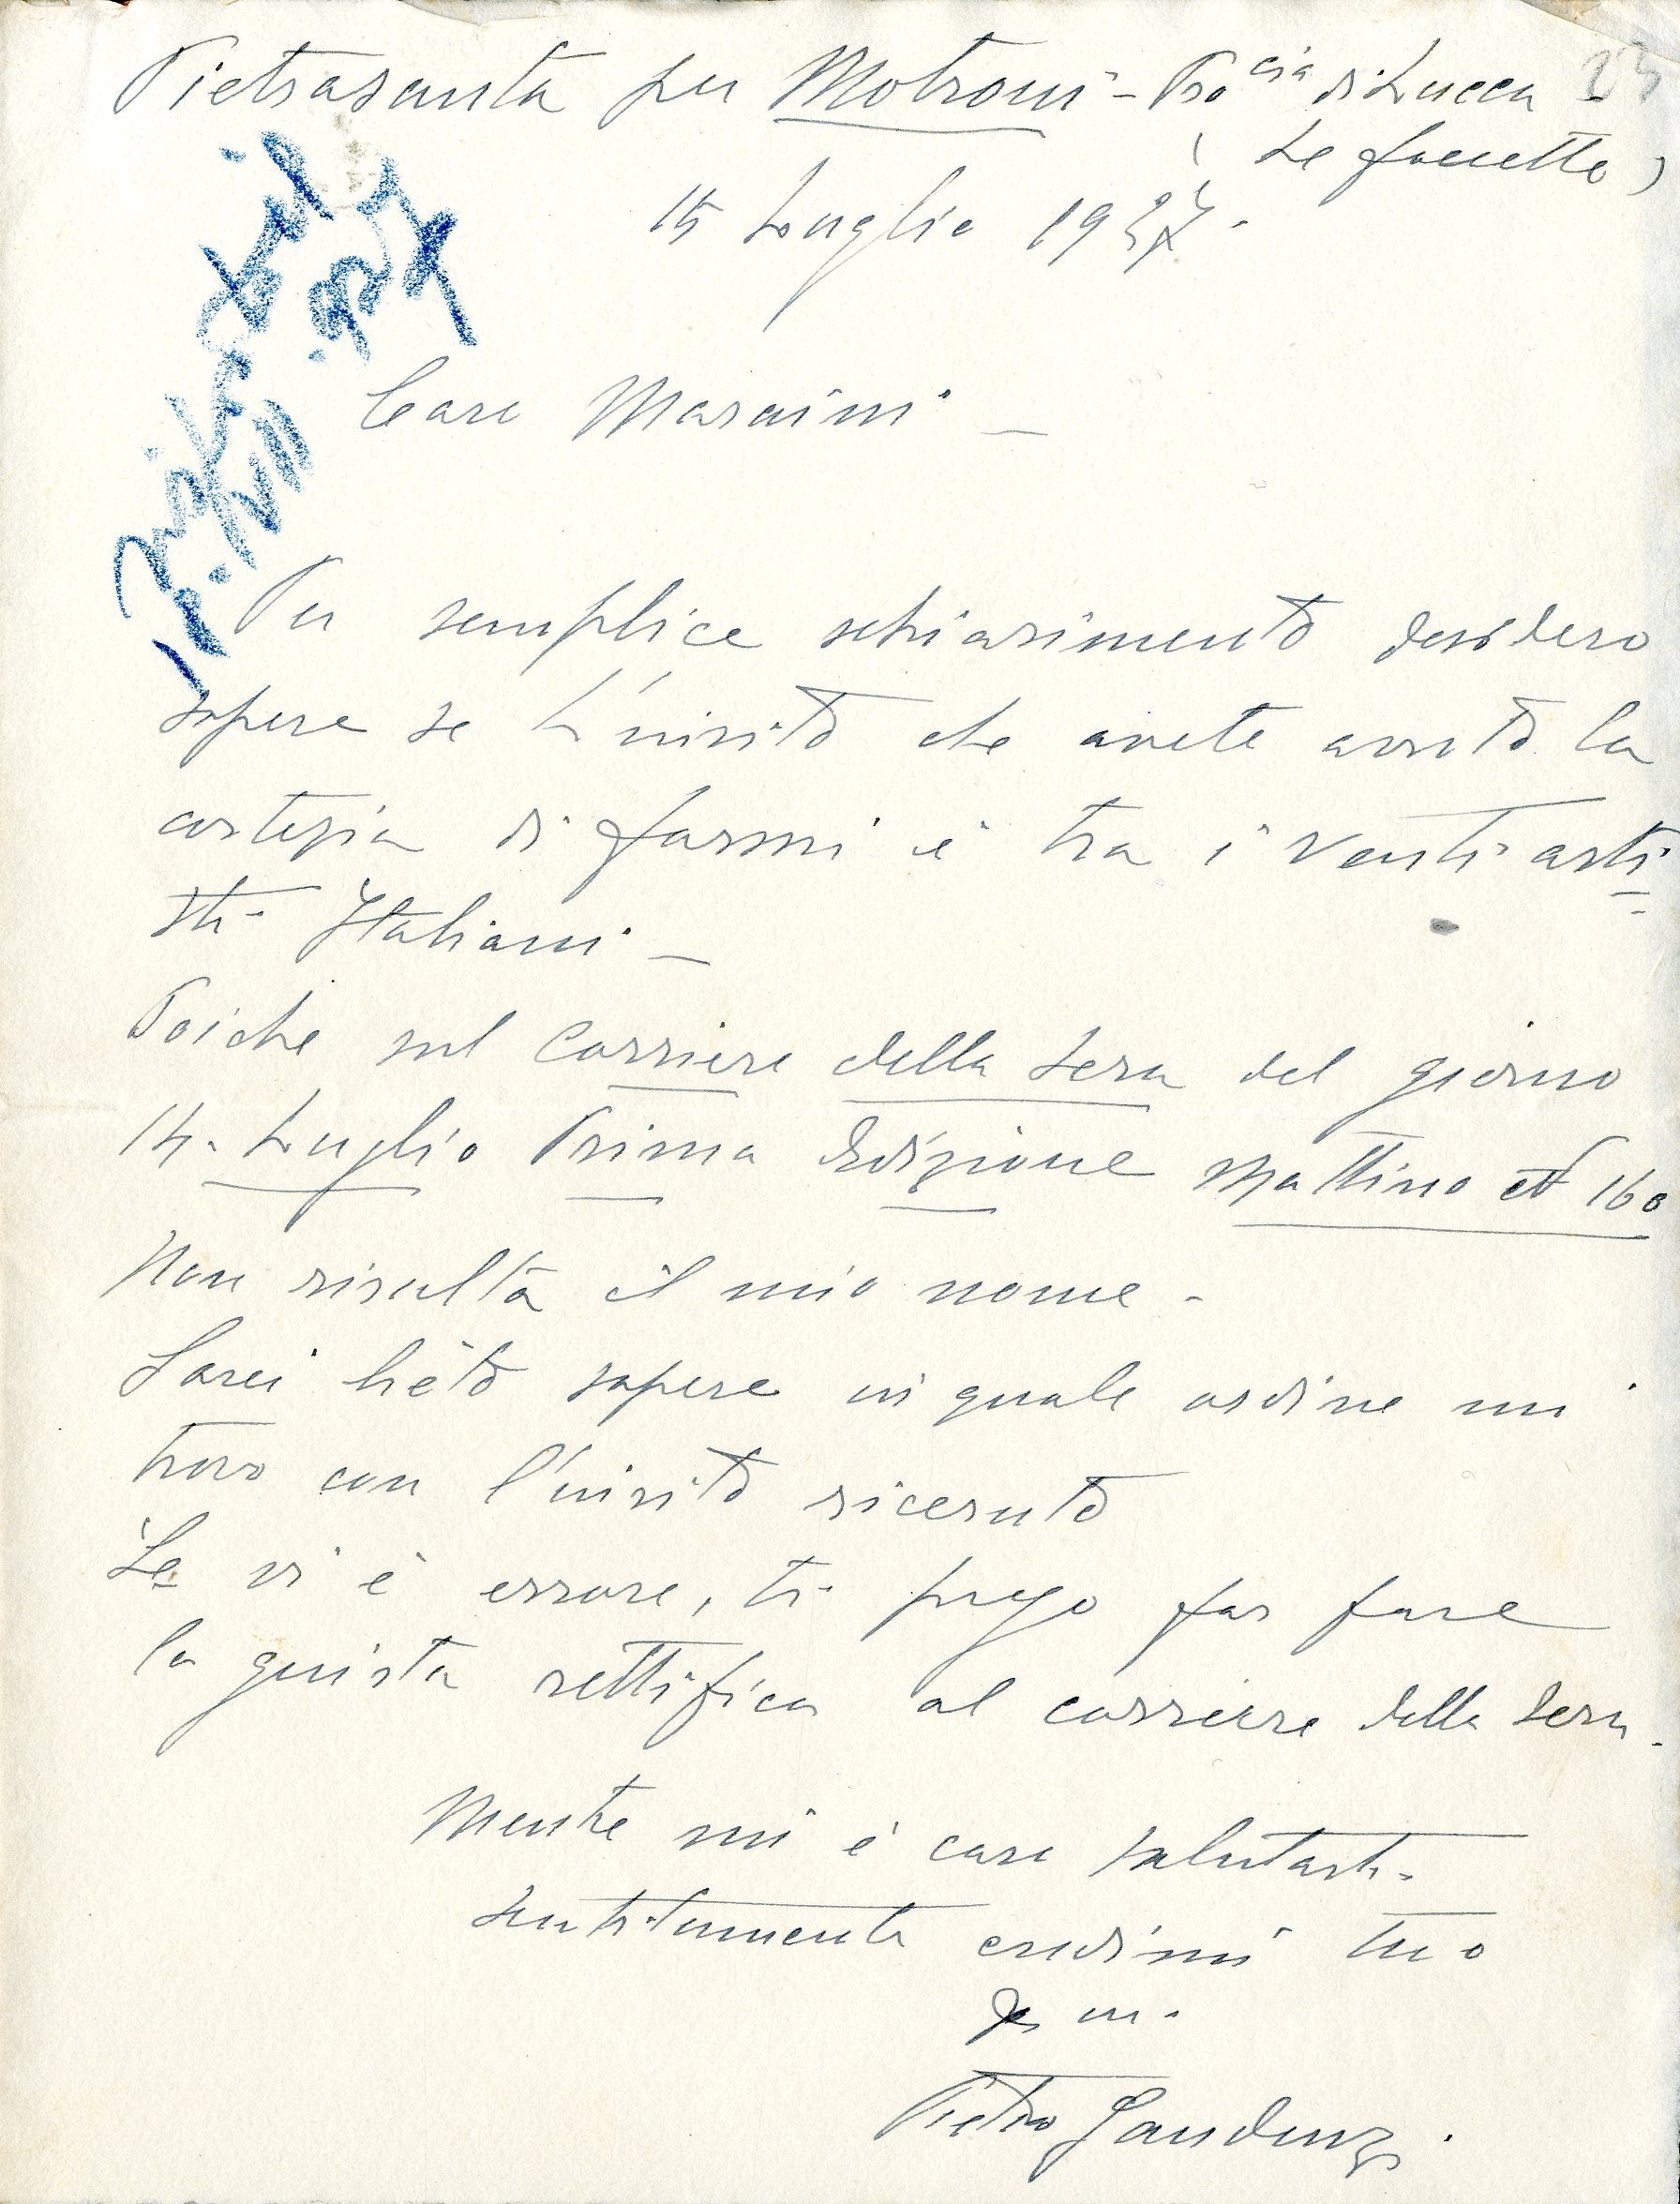 Pietrasanta per Motroni - Pro^cia di Lucca -
( Le focette )
15 Luglio 1927 -
Caro Maraini -
Per semplice schiarimento desidero
sapere se L'invito che avete avuto la
cortezia di farmi è tra i Venti arti=
sti Italiani -
Poiche sul Corriere della Sera del giorno
14. Luglio Prima Edizione Mattino N 168
Non risulta il mio nome -
Sarei lieto sapere in quale ordine mi
trovo con l'invito ricevuto
Se vi è errore, ti prego far fare
la giusta rettifica al corriere della Sera -
Mentre mi è caro salutarti -
sentitamente credimi tuo
Pietro Gaudenzi.